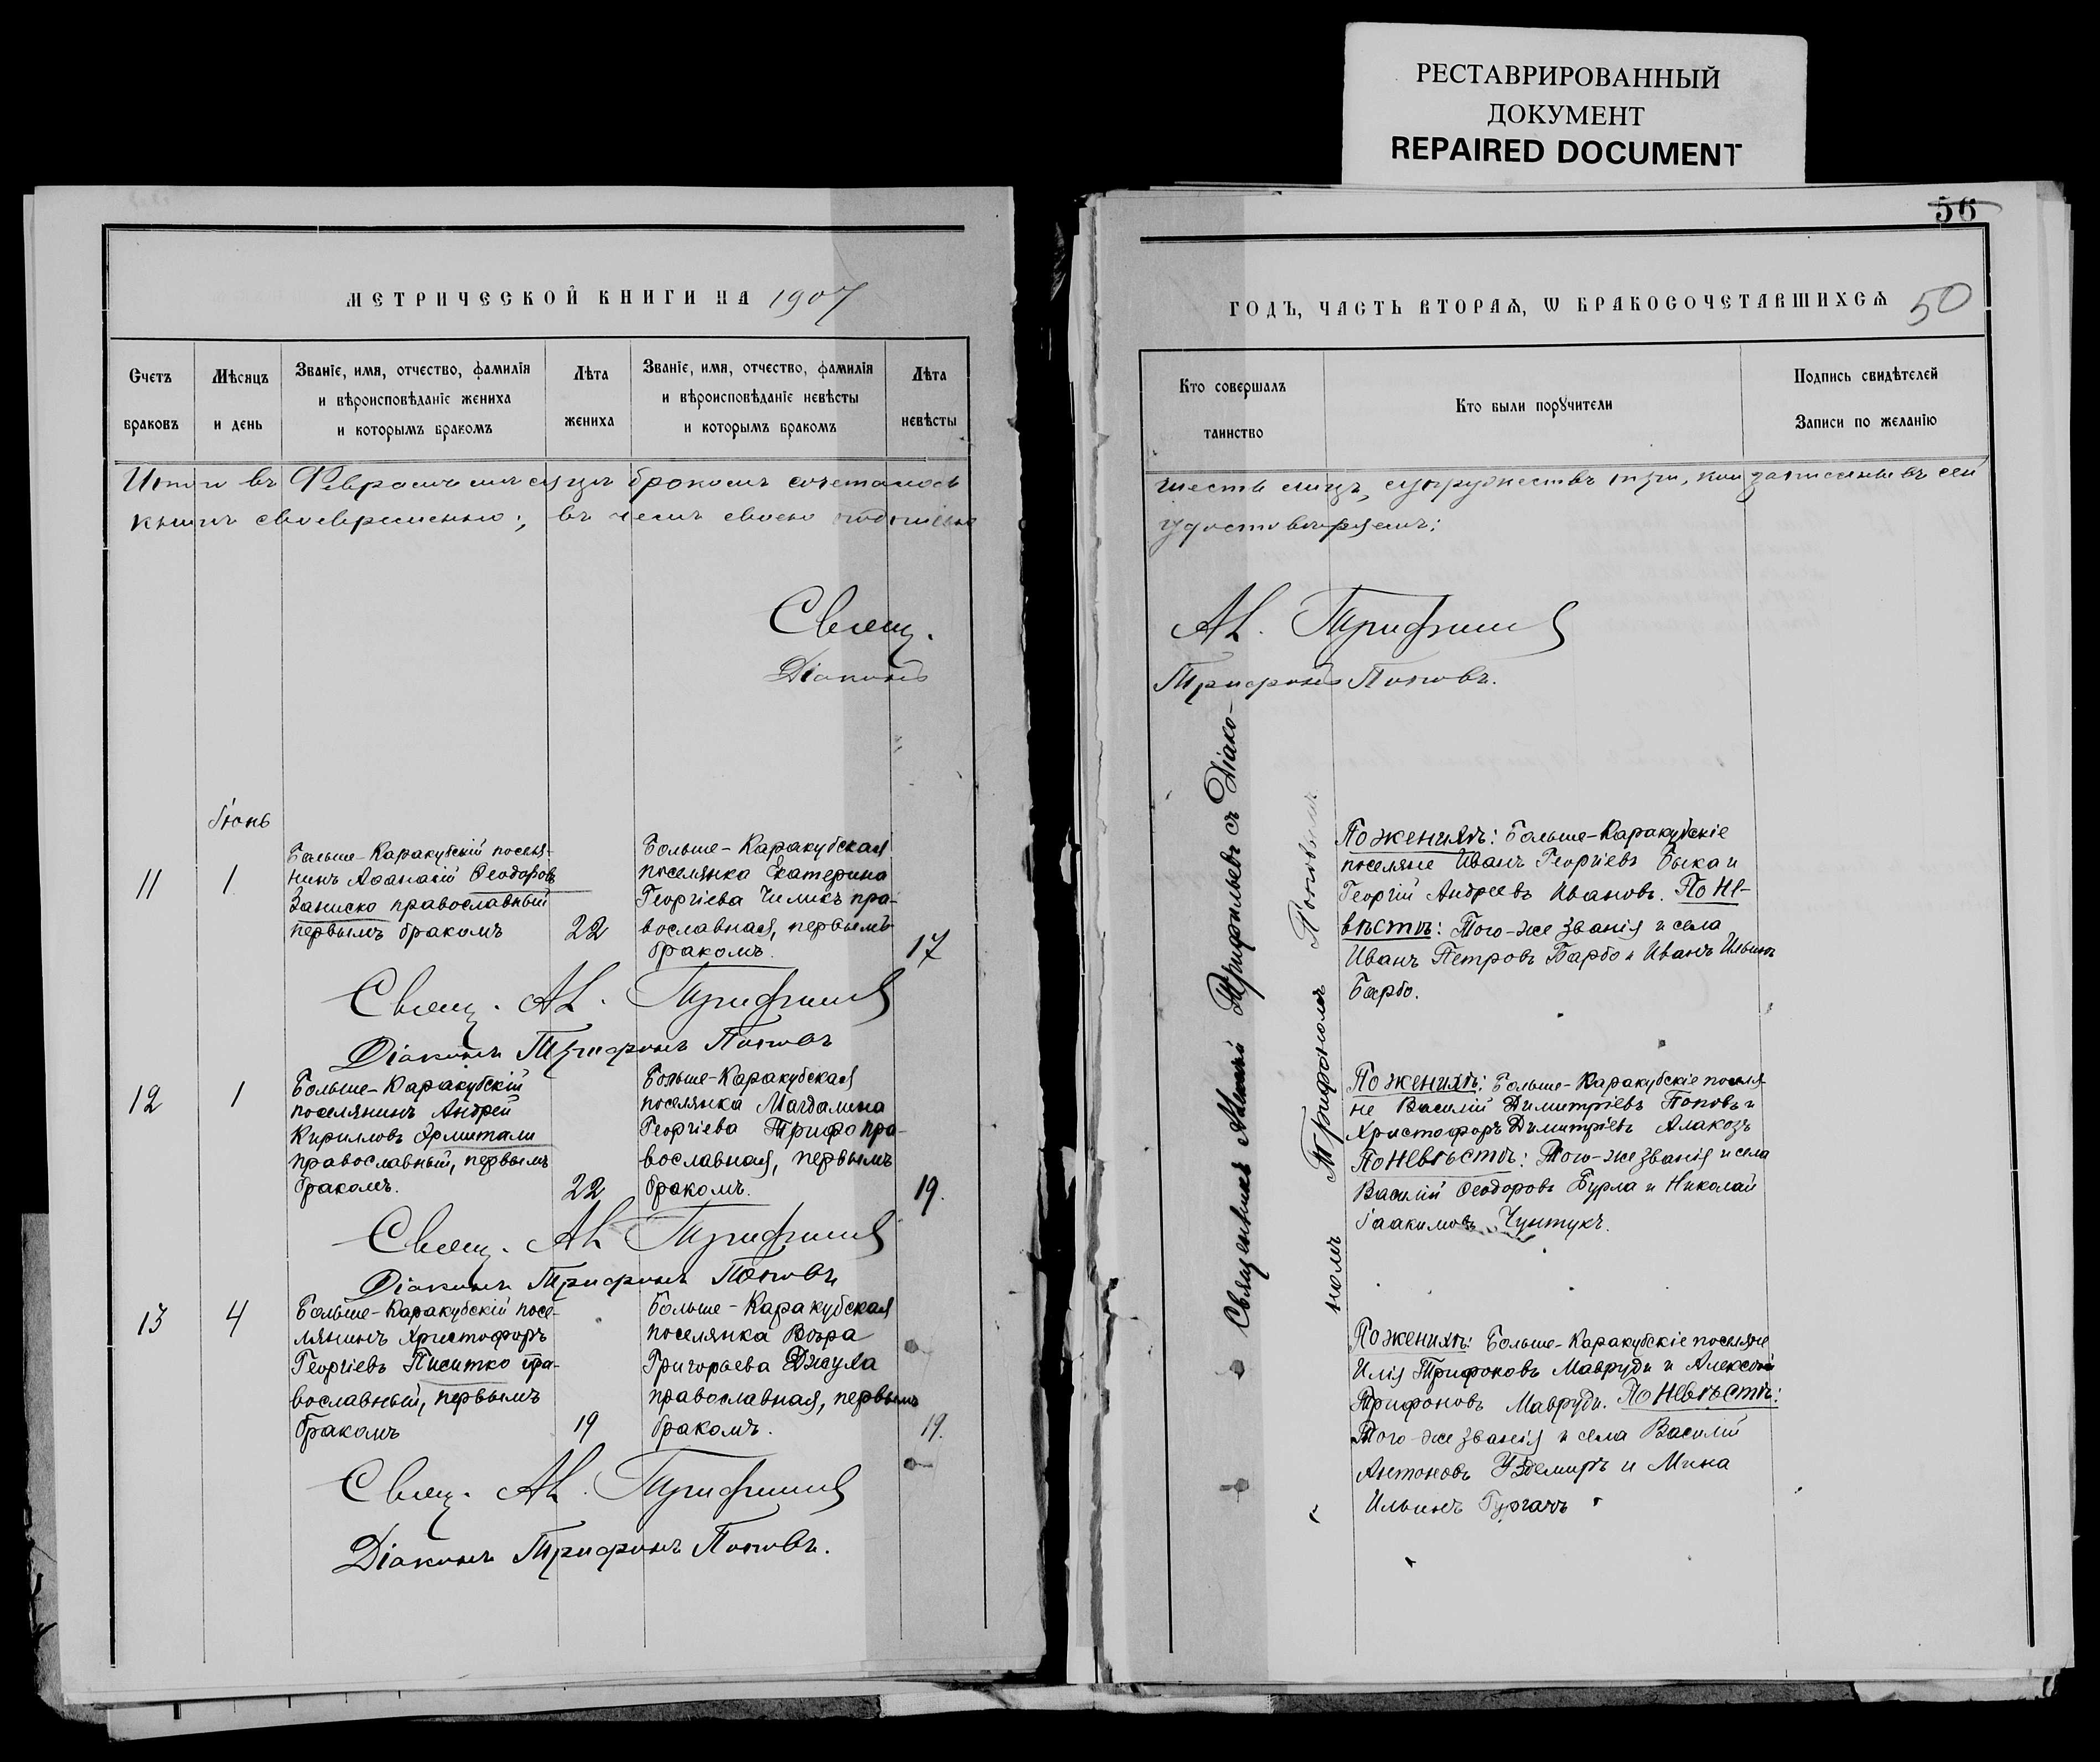 РЕСТАВРИРОВАННЫЙ
ДОКУМЕНТ
REPAIRED DOCUMENT
МЕТРИЧЕСКОЙ КНИГИ НА 1907
Счетъ
браковъ
Мѣсяцъ
и день
Званіе, имя, отчество, фамилія
и вѣроисповѣданіе жениха
и которымъ бракомъ
Лѣта
жениха
Званіе, имя, отчество, фамилія
и вѣроисповѣданіе невѣсты
и которымъ бракомъ
Лѣта
невѣсты
Итого въ Февралѣ мѣсяцѣ бракомъ сочеталось
книгѣ своевременно; въ чемъ своею подписью
Свящ.
Діаконъ
Іюнь
11
1
Больше-Каракубскій поселя-
нинъ Аѳанасій Ѳеодоровъ
Заниско православный
первымъ бракомъ
22
Больше-Каракубская
поселянка Екатерина
Георгіева Чиликъ пра-
вославная, первымъ
бракомъ.
17
Свящ. Ал. Трифильев
Діаконъ Трифонъ Поповъ
12
1
Больше-Каракубскій
поселянинъ Андрей
Кирилловъ Армитали
православный, первымъ
бракомъ.
22
Больше-Каракубская
поселянка Магдалина
Георгіева Трифо пра-
вославная, первымъ
бракомъ.
19.
Свящ. Ал Трифильев
Діаконъ Трифонъ Поповъ
13
4
Больше-Каракубскій посе-
лянинъ Христофоръ
Георгіевъ Писитко пра-
вославный, первымъ
бракомъ
19
Больше-Каракубская
поселянка Вѣра
Григорьева Джула
православная, первымъ
бракомъ.
19.
Свящ. Ал. Трифильев
Діаконъ Трифонъ Поповъ.
56
ГОДЪ, ЧАСТЬ ВТОРАЯ, Ѡ БРАКОСОЧЕТАВШИХСЯ 50
Кто совершалъ
таинство
Кто были поручители
Подпись свидѣтелей
Записи по желанію
шесть лицъ, супружествъ три, кои записаны въ сей
удостовѣряемъ:
Ал. Трифильев
Трифонъ Поповъ.
Священникъ Алексій Трифильевъ съ Діако-
номъ Трифономъ Поповымъ
По женихѣ: Больше-Каракубскіе
поселяне Иванъ Георгіевъ Быка и
Георгій Андреевъ Ивановъ. По не-
вѣстѣ: Того-же званія и села
Иванъ Петровъ Барбо и Иванъ Ильинъ
Барбо.
По женихѣ: Больше-Каракубскіе поселя-
не Василій Димитріевъ Поповъ и
Христофоръ Димитріевъ Алакозъ
По невѣстѣ: Того-же званія и села
Василій Ѳеодоровъ Бурла и Николай
Іаакимовъ Чунтукъ.
По женихѣ: Больше-Каракубскіе поселяне
Илія Трифоновъ Мавруди и Алексѣй
Трифоновъ Мавруди. По невѣстѣ:
Того-же званія и села Василій
Антоновъ Уздемиръ и Мина
Ильинъ Гургачъ